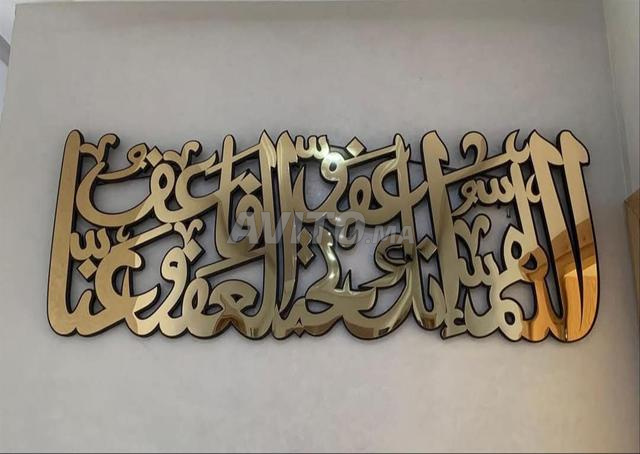 اللهم إنك عفو تحب العفو فاعف عنا
AVITO.ma